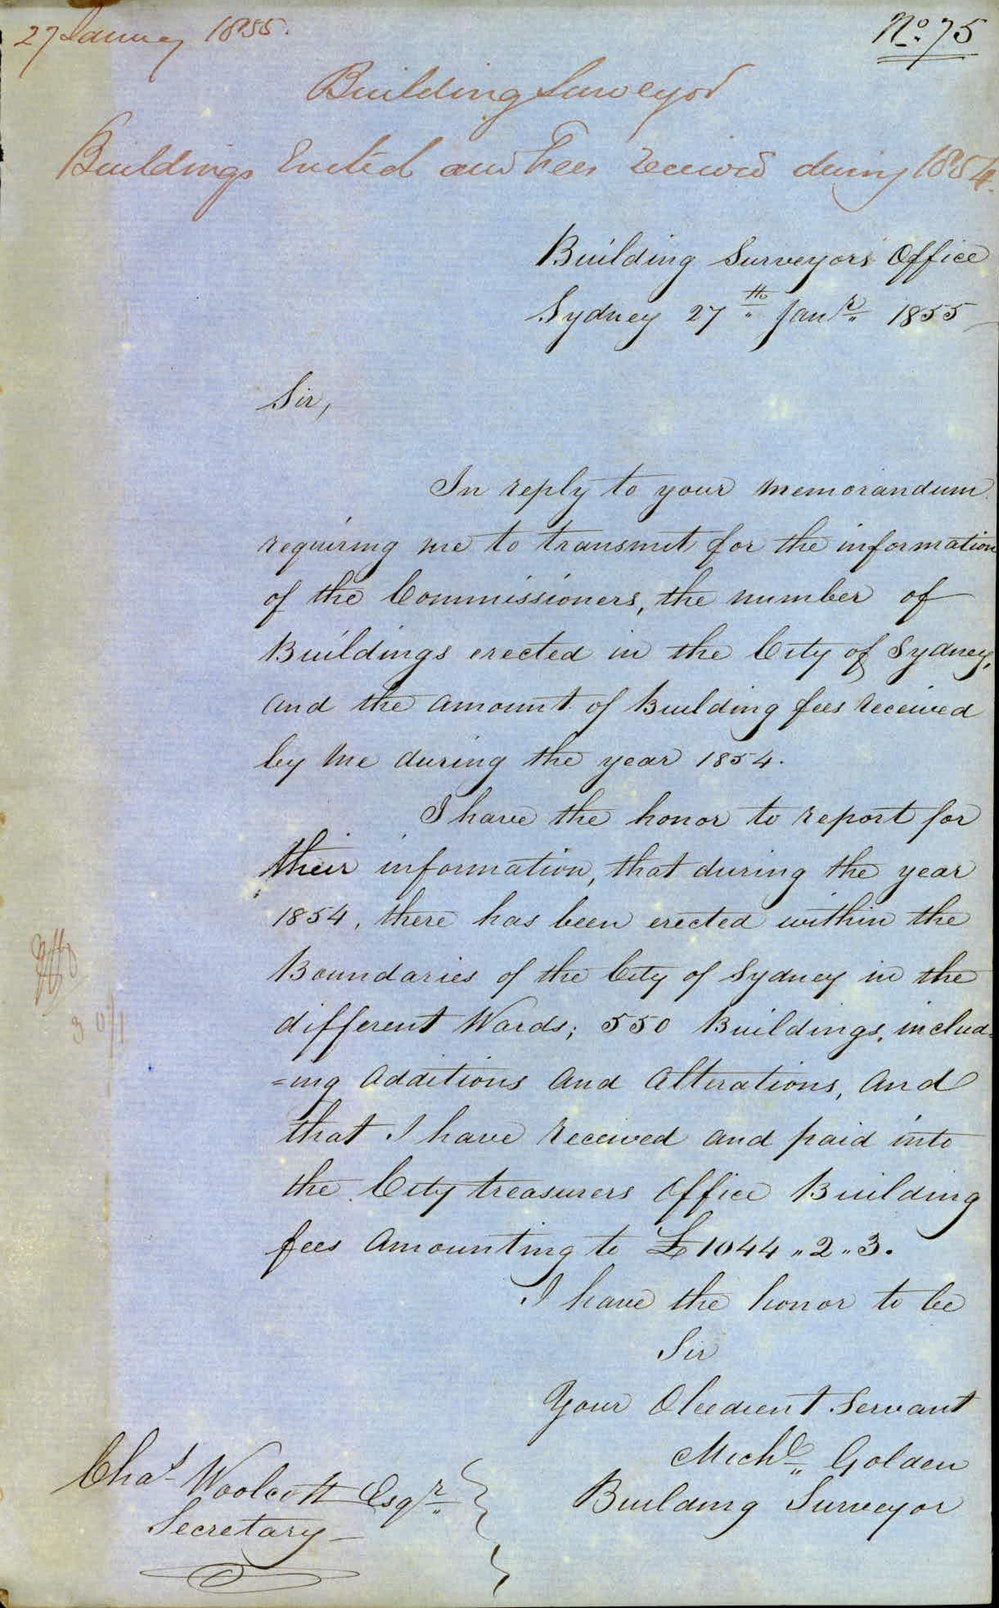 27 January 1855.
No. 75
Building Surveyor
Buildings Erected and Fees received during 1854.
Building Surveyors Office
Sydney 27th Janr 1855
Sir,
In reply to your memorandum
requiring me to transmit for the information
of the Commissioners, the number of
Buildings erected in the City of Sydney,
and the amount of Building fees received
by me during the year 1854.
I have the honor to report for
their information, that during the year
1854, there has been erected within the
Boundaries of the City of Sydney in the
different Wards; 550 Buildings, includ-
=ing additions and alterations, and
that I have received and paid into
the City treasurers Office Building
fees amounting to £1044 „ 2 „ 3.
I have the honor to be
Sir
Your Obedient Servant
Michl Golden
Building Surveyor
Chas Woolcott Esqr
Secretary
30/1